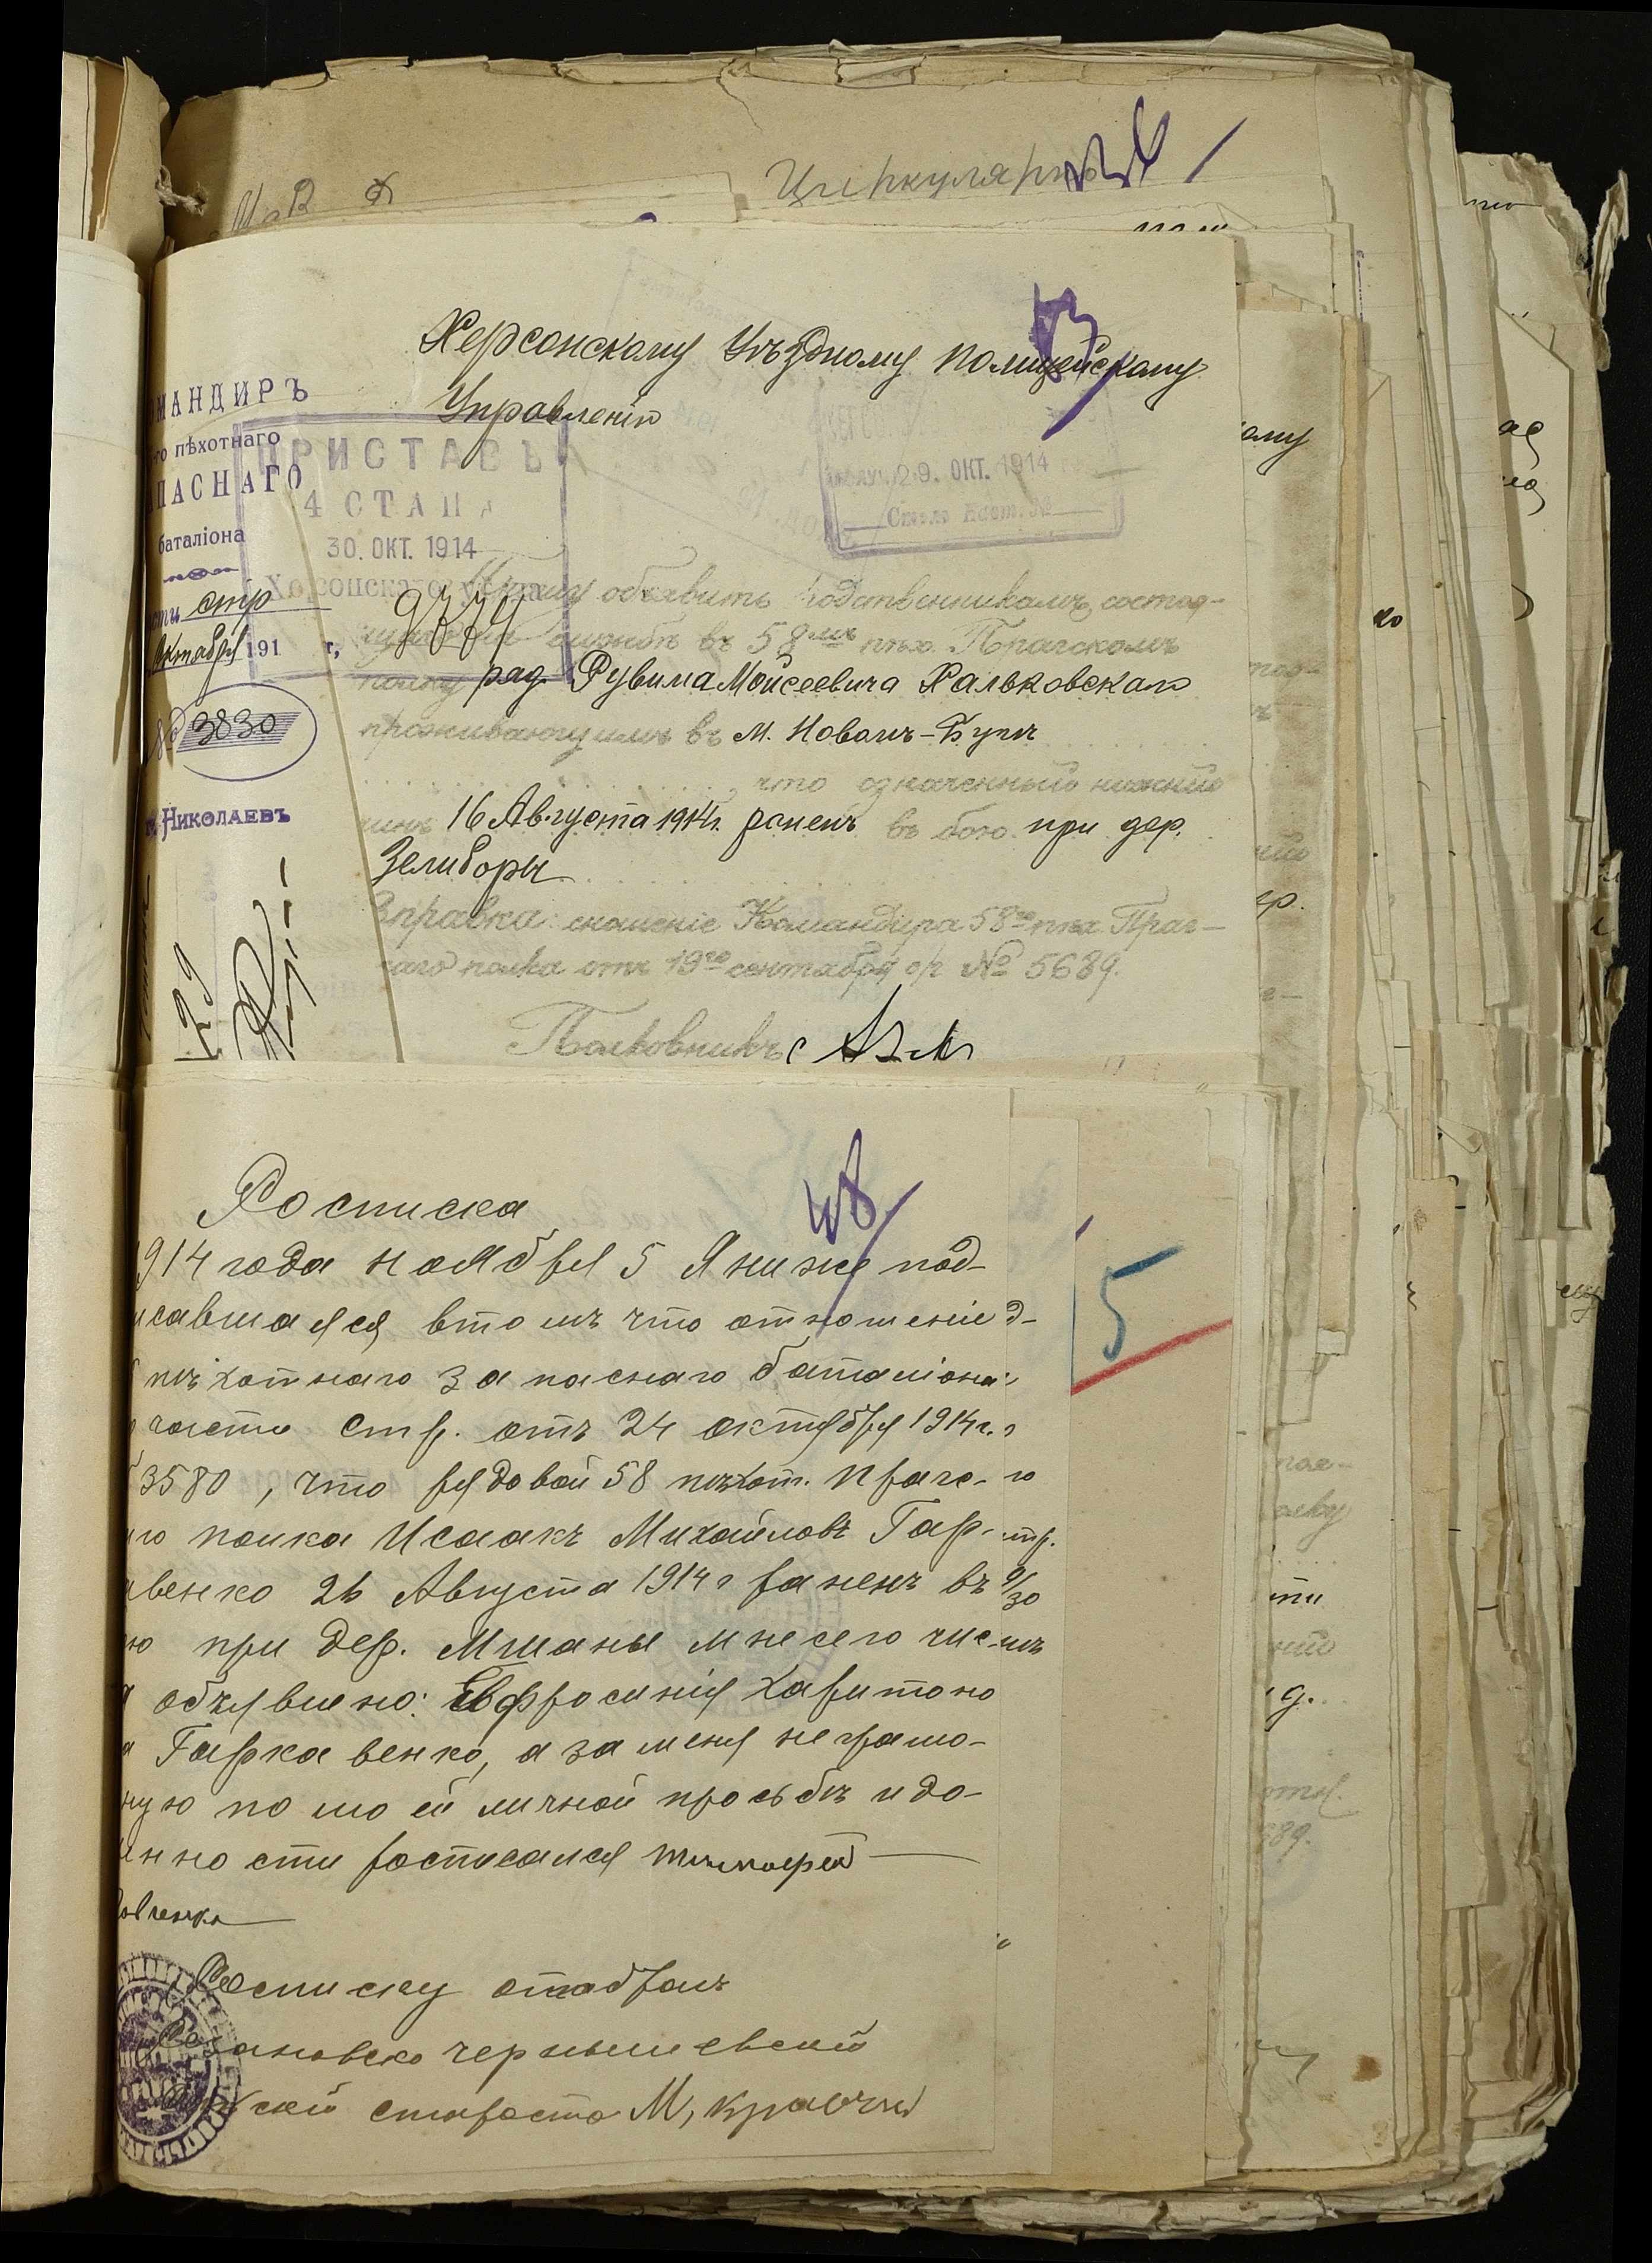 Циркулярно
Херсонскому Уѣздному Полицейскому
Управленію
МАНДИРЪ
го пѣхотнаго
ПАСНАГО
баталіона
сти стр
Октября 191 г.
№ 3830
г. Николаевъ
ПРИСТАВЪ
4 СТАНА
30. ОКТ. 1914
Херсонскаго уѣзда
29. ОКТ. 1914
Прошу объявить родственникамъ, состоя-
службѣ въ 58мъ пѣх. Прагскомъ
полку ряд. Рувима Мойсеевича Хальковскаго
проживающимъ въ м. Новомъ-Бугѣ
что означенный нижній
чинъ 16 Августа 1914г. раненъ въ бою при дер.
Зелиборы
Справка: сношеніе Командира 58го пѣх. Праг-
скаго полка отъ 19го сентября с/г № 5689.
Полковникъ
Росписка
48
914 года ноября 5 Я ниже под-
исавшаяся втомъ что отношеніе
пѣхотнаго запаснаго баталіона
части стр. отъ 24 октября 1914г.
3580, что рядовой 58 пѣхот. Прагс-
го полка Исаакъ Михайловъ Гар-
авенко 26 Августа 1914г раненъ въ
ю при дер. Мшаны мне сего чис-
а объявлено: Евфросинія Харитоно
а Гаркавенко, а за меня неграмо-
ную по моей личной просьбѣ и до-
инности росписался тимофей
овченко
Росписку отобралъ
ановско чернышевскій
скій староста М, Кравчи
5